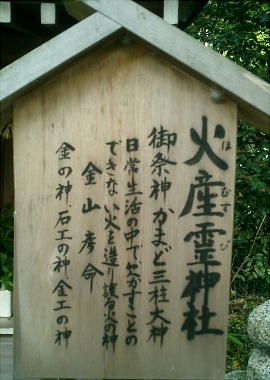 火産霊神社
ほむすび
御祭神 かまど三柱大神
日常生活の中で欠かすことの
できない火を造り護る火の神
金山彦命
金の神、石工の神、金工の神